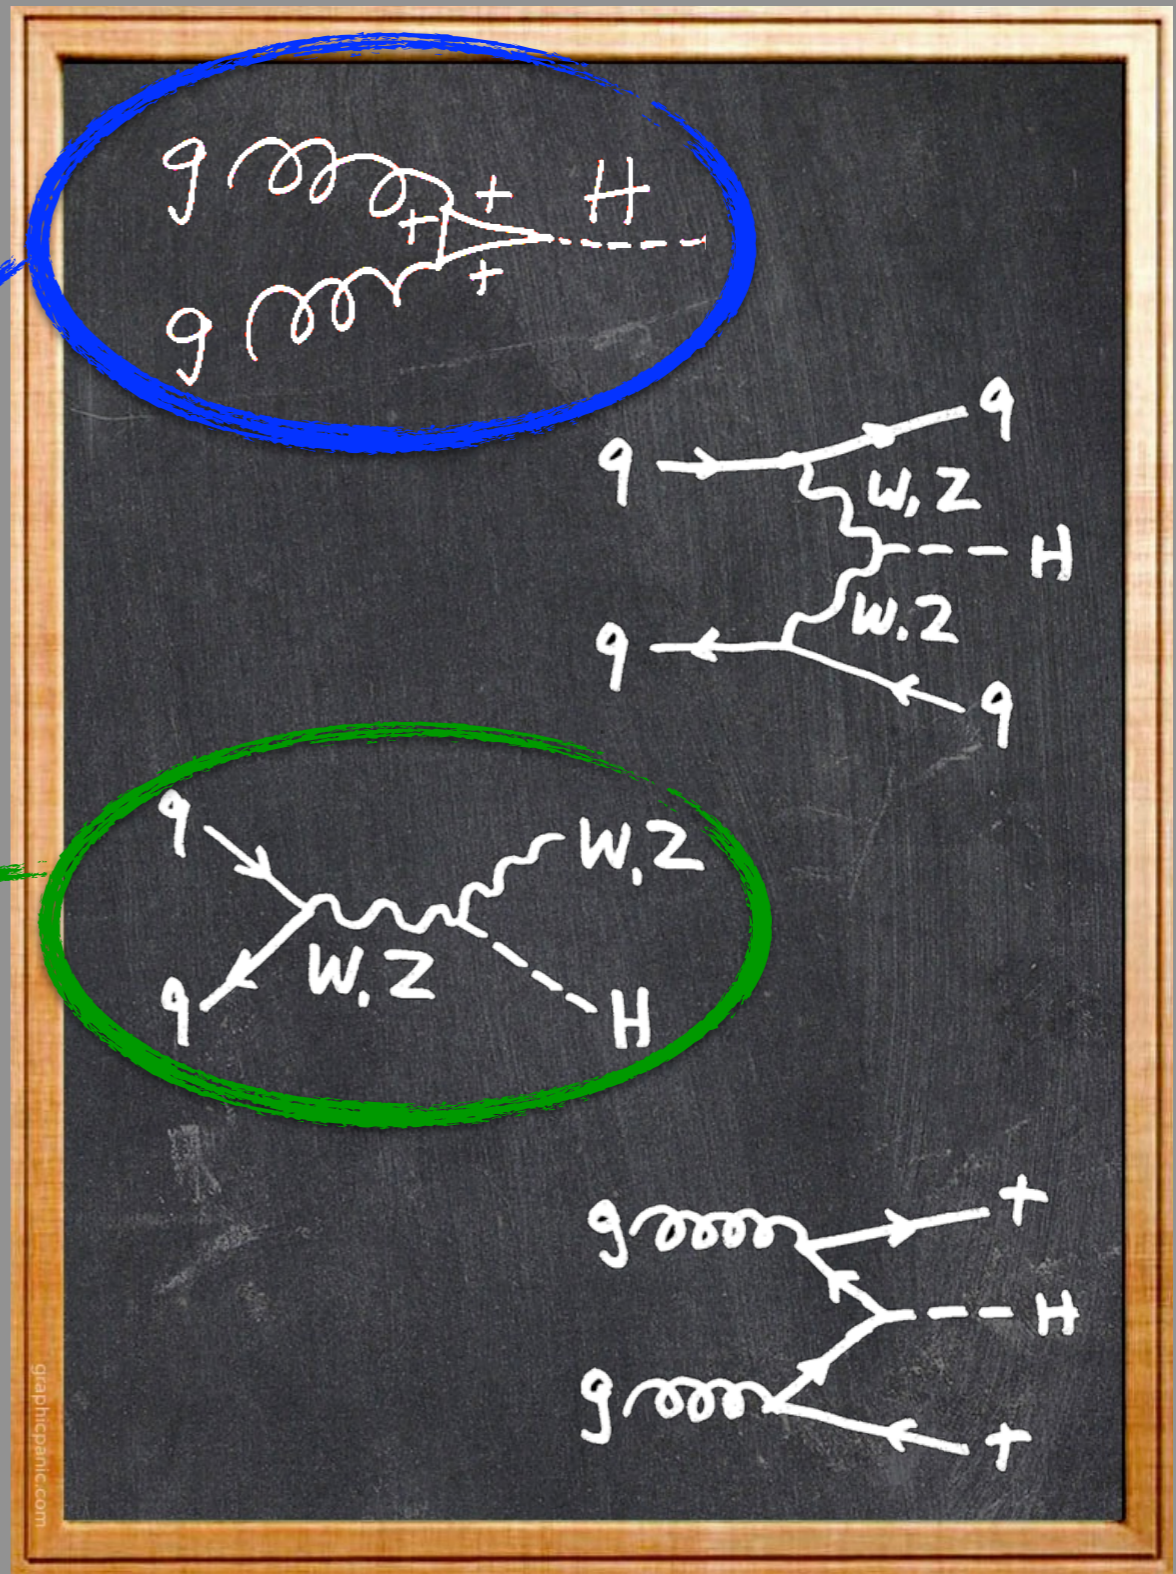 g t H
t
g t
q q
W, Z
H
W, Z
q q
q W, Z
W, Z
q H
g t
H
g t
graphicpanic.com